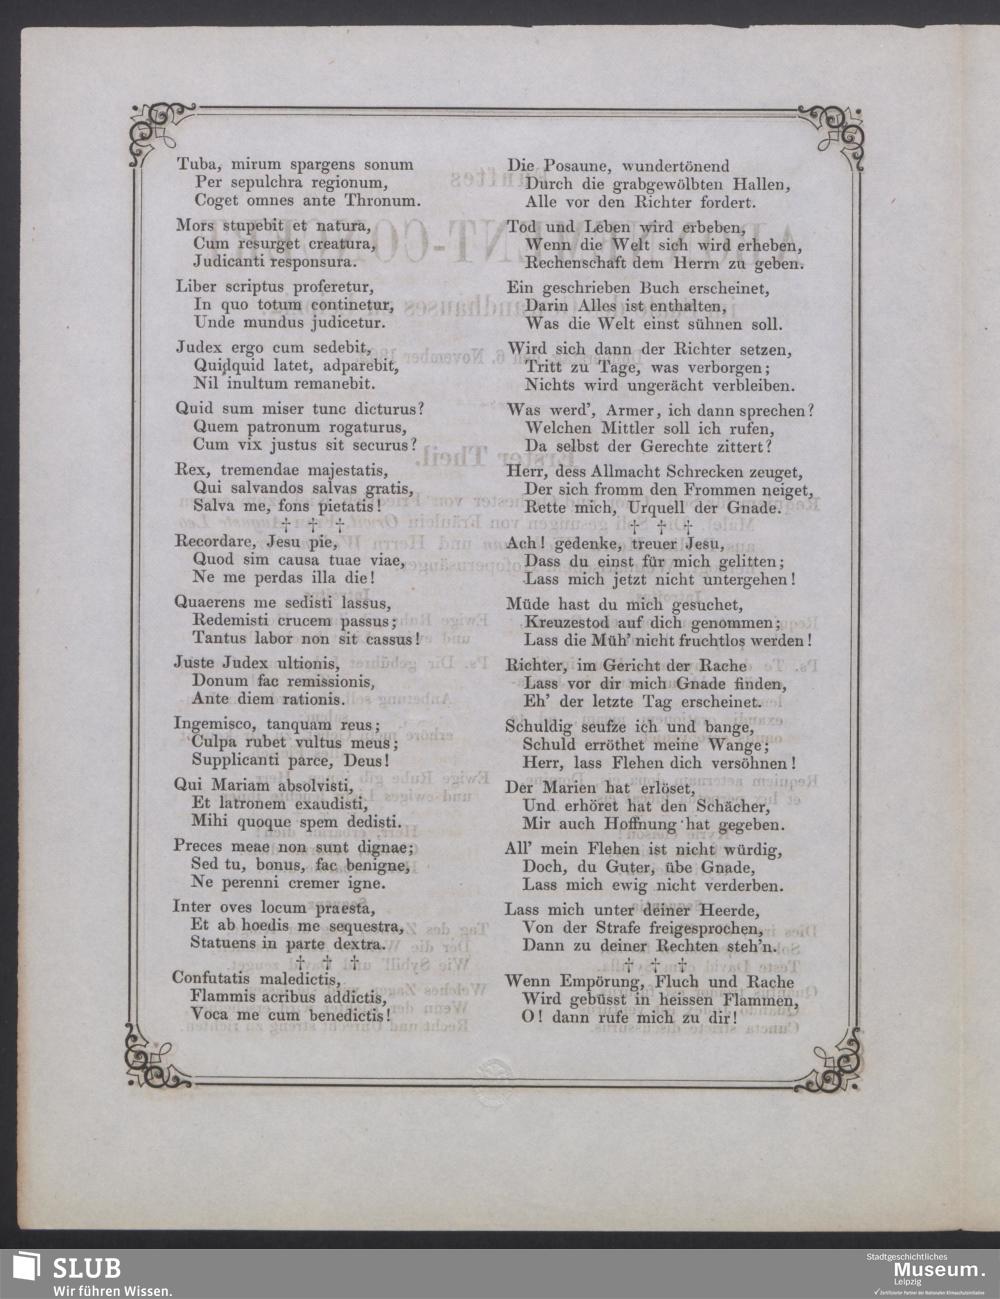 Tuba, mirum spargens sonum
Per sepulchra regionum,
Coget omnes ante Thronum.
Mors stupebit et natura,
Cum resurget creatura,
Judicanti responsura.
Liber scriptus proferetur,
In quo totum continetur,
Unde mundus judicetur.
Judex ergo cum sedebit,
Quidquid latet, adparebit,
Nil inultum remanebit.
Quid sum miser tunc dicturus?
Quem patronum rogaturus,
Cum vix justus sit securus?
Rex, tremendae majestatis,
Qui salvandos salvas gratis,
Salva me, fons pietatis!
† † †
Recordare, Jesu pie,
Quod sim causa tuae viae,
Ne me perdas illa die!
Quaerens me sedisti lassus,
Redemisti crucem passus;
Tantus labor non sit cassus!
Juste Judex ultionis,
Donum fac remissionis,
Ante diem rationis.
Ingemisco, tanquam reus;
Culpa rubet vultus meus;
Supplicanti parce, Deus!
Qui Mariam absolvisti,
Et latronem exaudisti,
Mihi quoque spem dedisti.
Preces meae non sunt dignae;
Sed tu, bonus, fac benigne,
Ne perenni cremer igne.
Inter oves locum praesta,
Et ab hoedis me sequestra,
Statuens in parte dextra.
† † †
Confutatis maledictis,
Flammis acribus addictis,
Voca me cum benedictis!
Die Posaune, wundertönend
Durch die grabgewölbten Hallen,
Alle vor den Richter fordert.
Tod und Leben wird erbeben,
Wenn die Welt sich wird erheben,
Rechenschaft dem Herrn zu geben.
Ein geschrieben Buch erscheinet,
Darin Alles ist enthalten,
Was die Welt einst sühnen soll.
Wird sich dann der Richter setzen,
Tritt zu Tage, was verborgen;
Nichts wird ungerächt verbleiben.
Was werd', Armer, ich dann sprechen?
Welchen Mittler soll ich rufen,
Da selbst der Gerechte zittert?
Herr, dess Allmacht Schrecken zeuget,
Der sich fromm den Frommen neiget,
Rette mich, Urquell der Gnade.
† † †
Ach! gedenke, treuer Jesu,
Dass du einst für mich gelitten;
Lass mich jetzt nicht untergehen!
Müde hast du mich gesuchet,
Kreuzestod auf dich genommen;
Lass die Müh' nicht fruchtlos werden!
Richter, im Gericht der Rache
Lass vor dir mich Gnade finden,
Eh' der letzte Tag erscheinet.
Schuldig seufze ich und bange,
Schuld erröthet meine Wange;
Herr, lass Flehen dich versöhnen!
Der Marien hat erlöset,
Und erhöret hat den Schächer,
Mir auch Hoffnung hat gegeben.
All' mein Flehen ist nicht würdig,
Doch, du Guter, übe Gnade,
Lass mich ewig nicht verderben.
Lass mich unter deiner Heerde,
Von der Strafe freigesprochen,
Dann zu deiner Rechten steh'n.
† † †
Wenn Empörung, Fluch und Rache
Wird gebüsst in heissen Flammen,
O! dann rufe mich zu dir!
SLUB
Wir führen Wissen.
Stadtgeschichtliches
Museum.
Leipzig
Zertifizierter Partner der Nationalen Klimaschutzinitiative